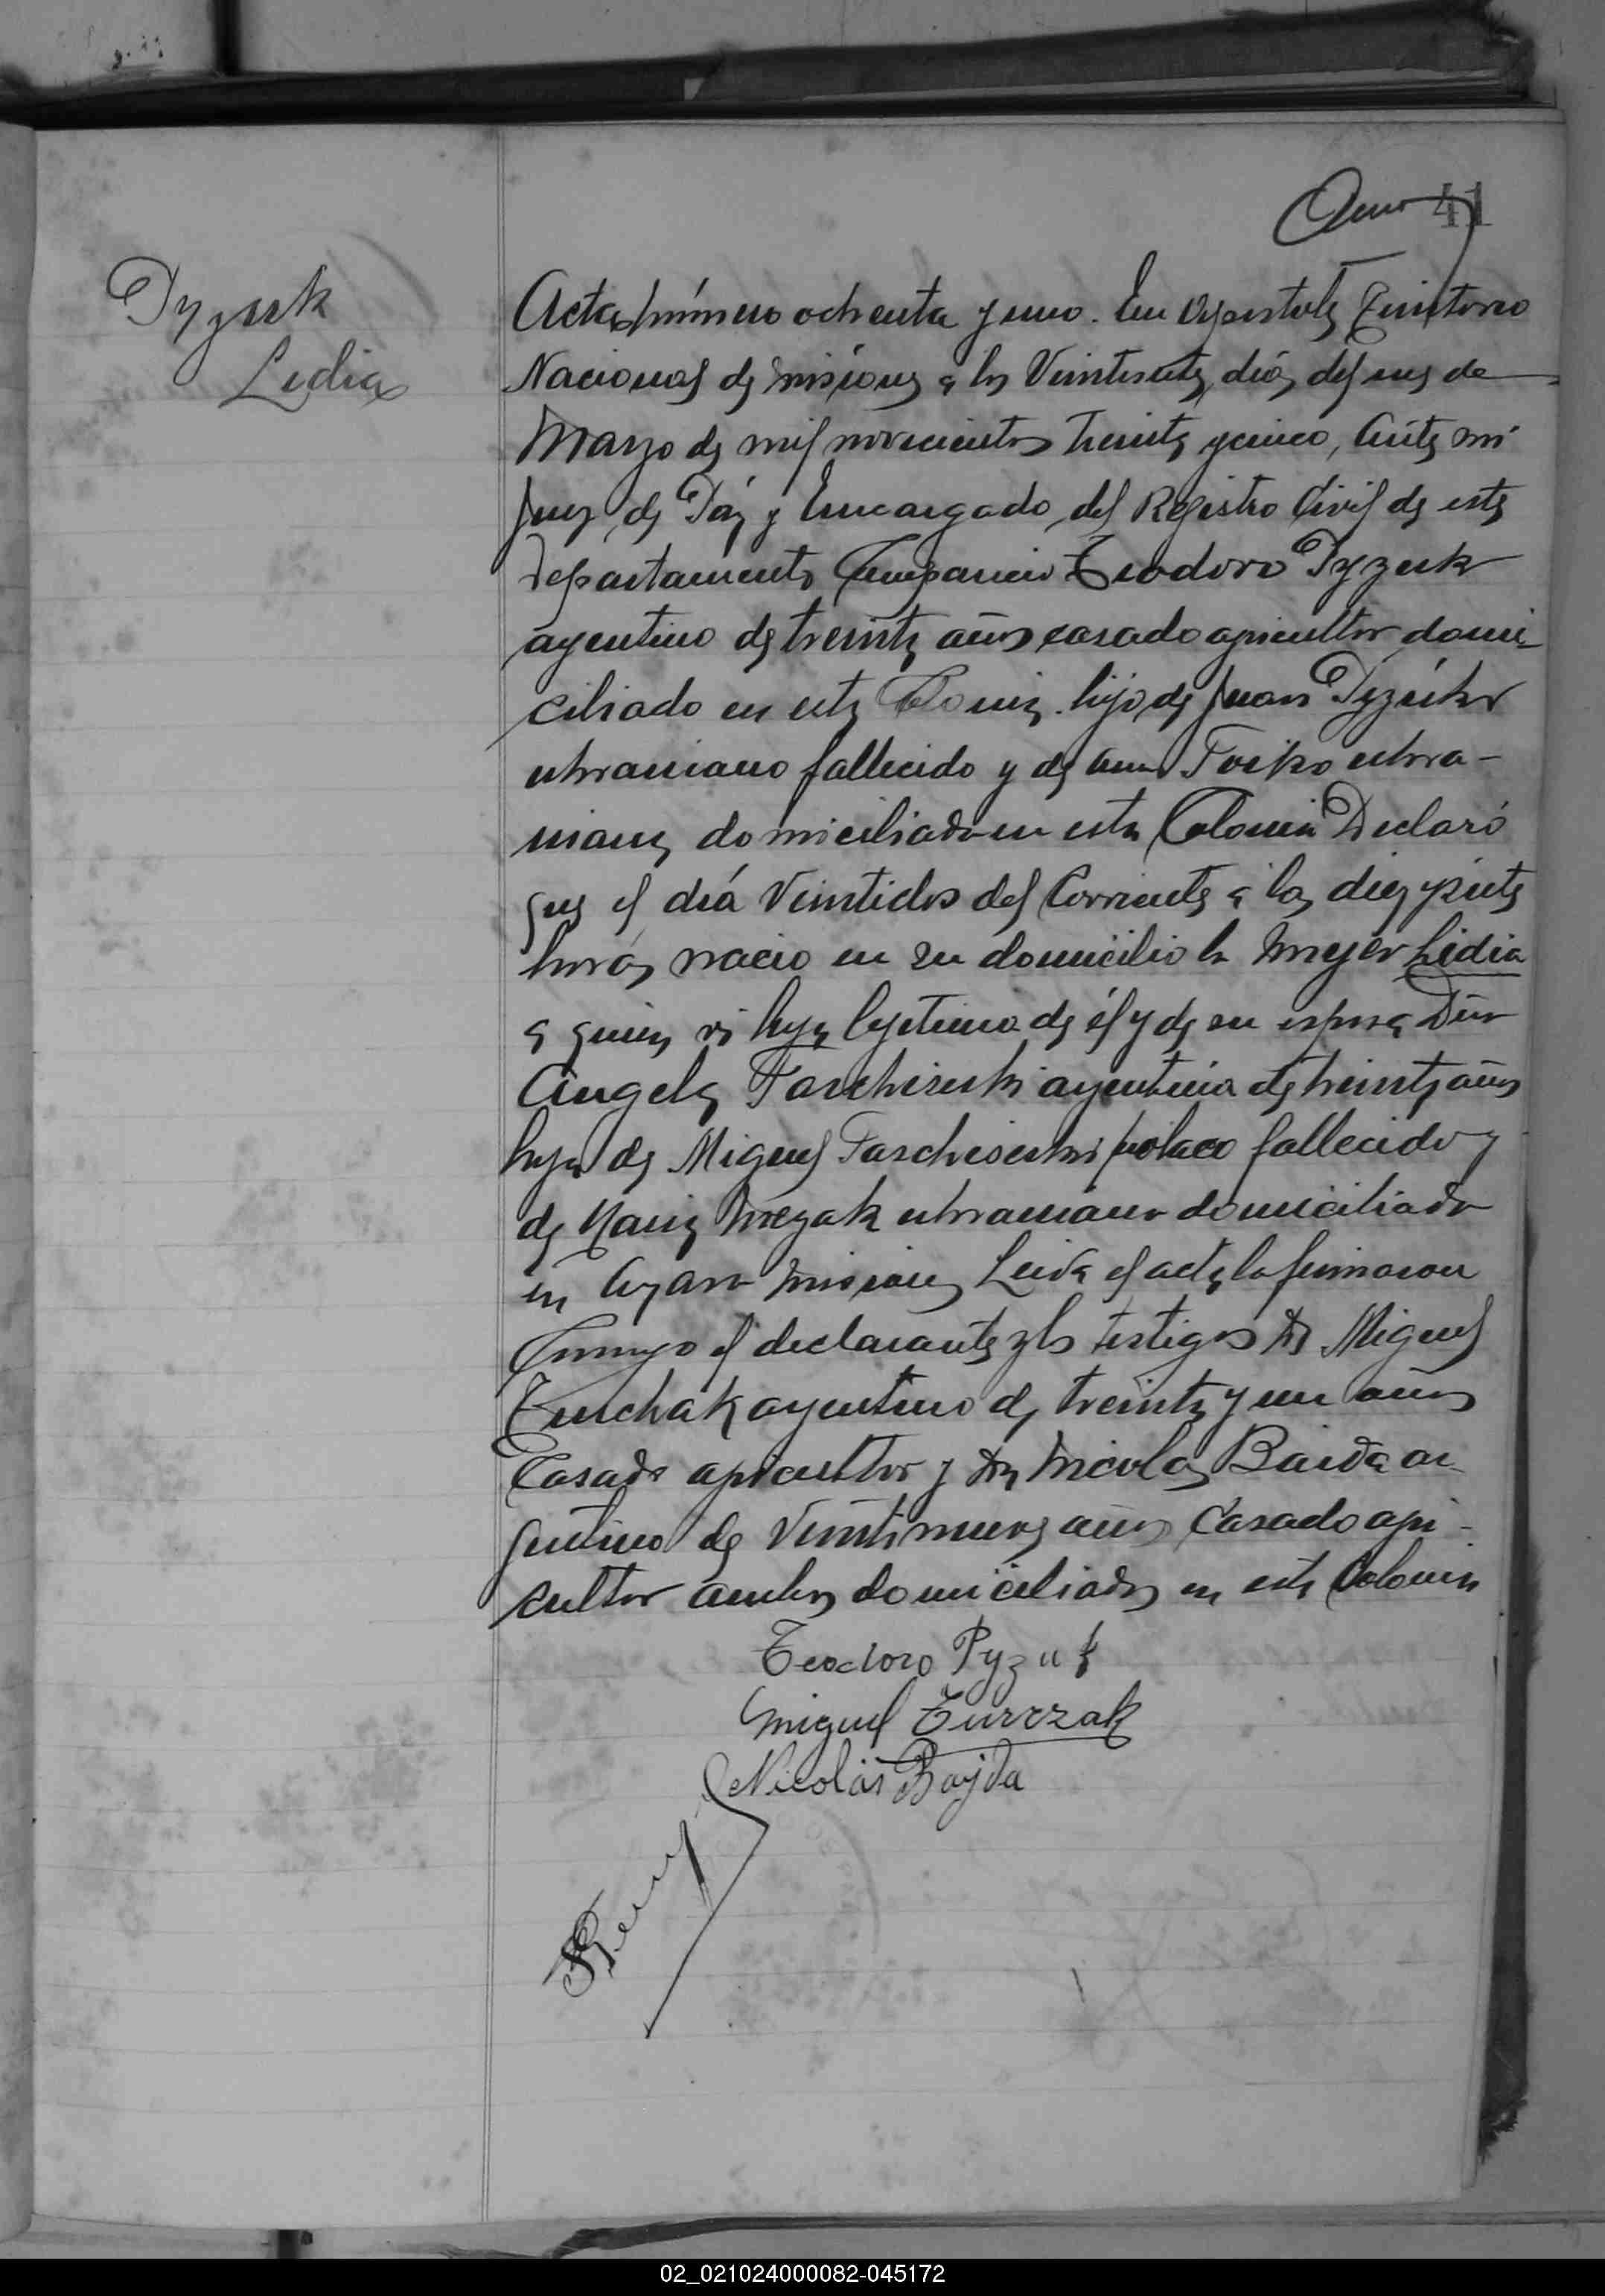 41
Pyzuk
Lidia
Acta número ochenta y uno. En Apostoles Territorio
Nacional de Misiones a los Veintisiete dias del mes de
Marzo de mil novecientos treinta y cinco, Ante mi
Juez de Paz y Encargado del Registro Civil de este
Departamento Comparecio Teodoro Pyzuk
argentino de treinta años casado agricultor domi-
ciliado en esta Colonia hijo de Juan Pyzuk
ukraniano fallecido y de Ana ukra-
niana domiciliada en esta Colonia Declaró
que el dia Veintidos del Corriente a las diez y siete
horas nacio en su domicilio la mujer Lidia
a quien vi hija legitima de él y de su esposa Doña
Angela argentina de treinta años
hija de Miguel polaco fallecido y
de Maria ukraniana domiciliada
en Azara Misiones Leida el acta la firmaron
Conmigo el declarante y los testigos Dn Miguel
Turchak argentino de treinta y un años
Casado agricultor y Dn Nicolas Baida ar-
gentino de Veintinueve años Casado agri-
cultor ambos domiciliados en esta Colonia
Teodoro Pyzuk
Miguel Turczak
Nicolás Bayda
02_021024000082-045172